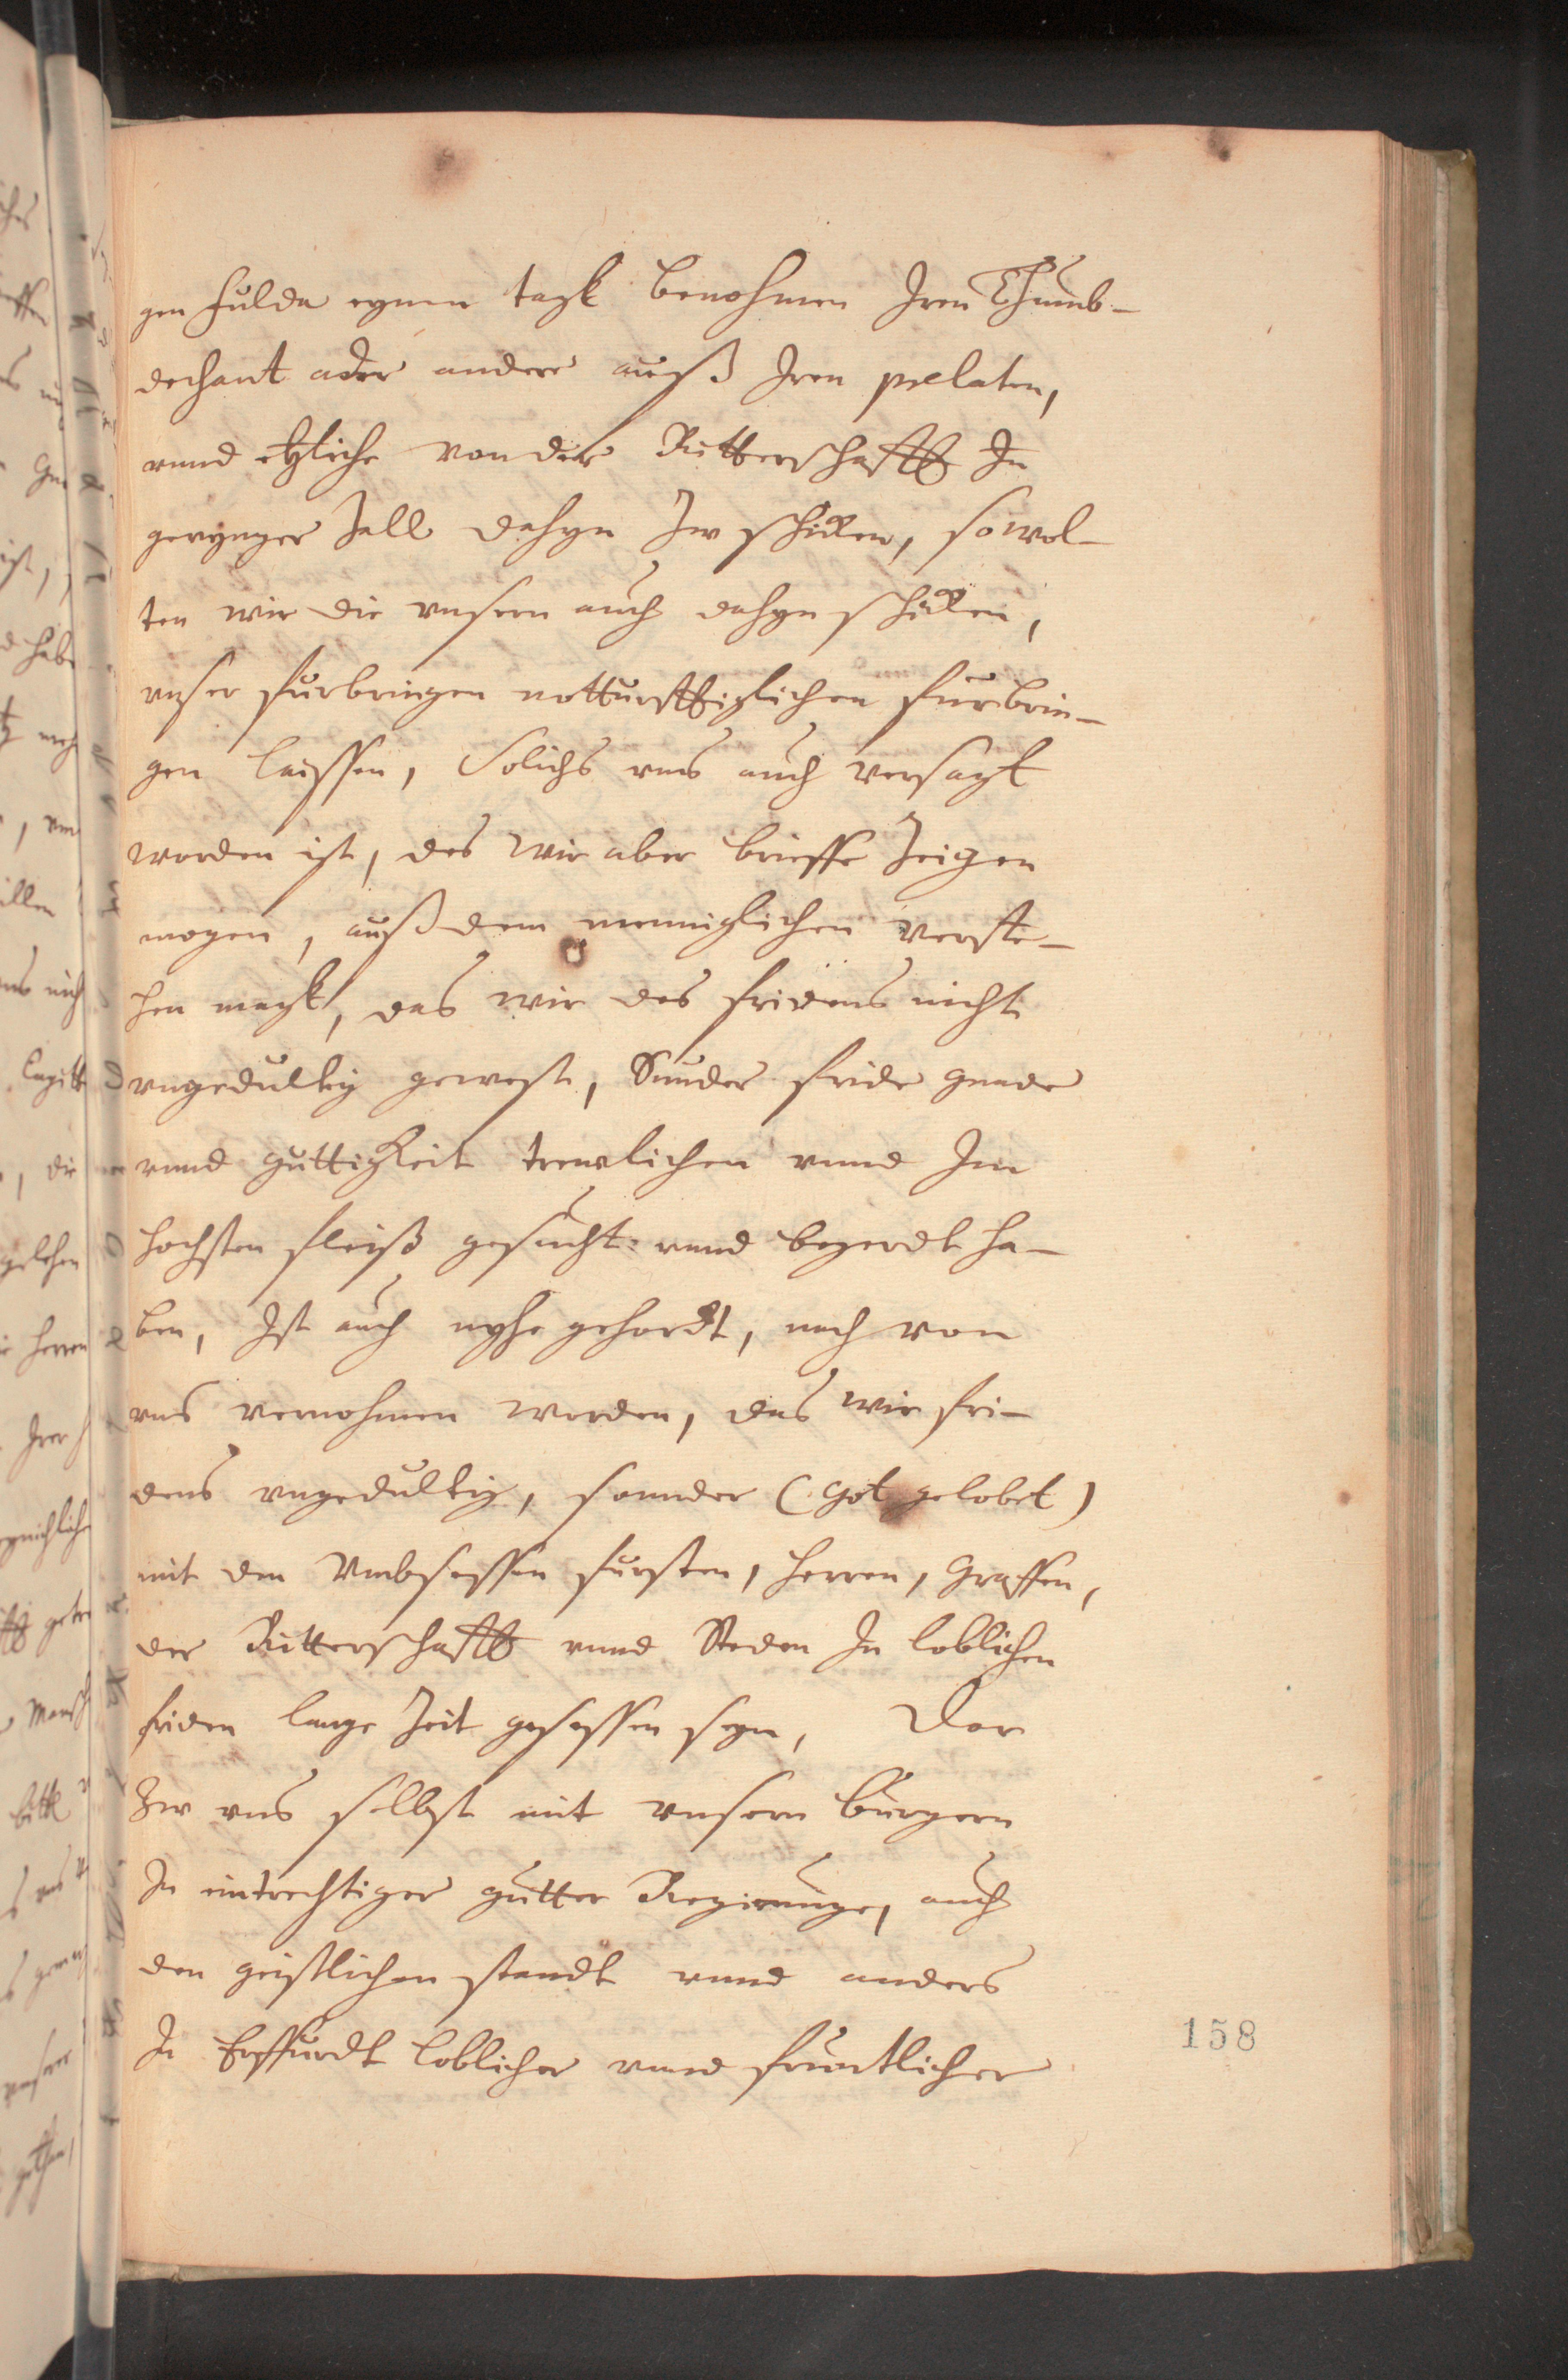 gen Fulda eynen tagk benohmen Iren Thumb-
dechant ader andere auß Iren prelaten,
vnnd etzliche von der Ritterschafft In
geringer Zall dahyn Zw schicken, so wol-
ten wir die vnsern auch dahyn schicken,
vnser furbringen notturfftiglichen furbrin-
gen laissen, Solichs vns auch versagt
worden ist, des wir aber brieffe Zeigen
mogen, auß dem menniglichen verste-
hen magk, das wir des fridens nicht
vngedultig gewest, Sunder fride gnade
vnnd guttigkeit trewlichen vnnd Im
hochsten fleiß gesucht vnnd begerdt ha-
ben, Ist auch nyhe gehordt, noch von
vns vernohmen worden, das wir fri-
dens vngedultig, sonnder (got gelobet)
mit den Vmbsessen fursten, Herren, Graffen,
der Ritterschafft vnnd Steden In loblichen
friden lange Zeit gesessen seyn, Dar
Zw vns selbst mit vnsern burgern
In eintrechtiger gutter Regirunge, auch
den geistlichen standt vnnd anders
In Erffurdt loblicher vnnd fruntlicher
158